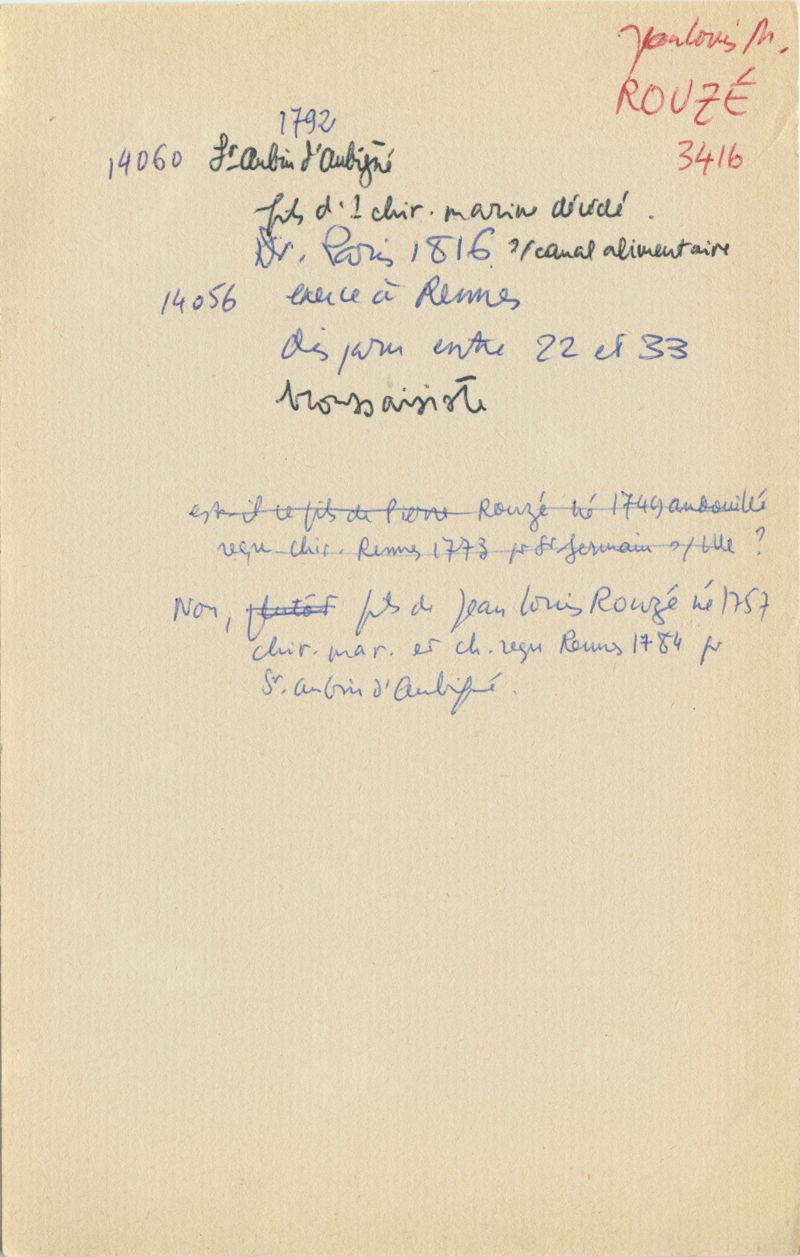 Jean Louis M.
ROUZÉ
3416
1792
14060 St Aubin d'Aubigné
fils d'1 chir. marine décédé.
Dr. Paris 1816 s/canal alimentaire
14056 exerce à Rennes
disparu entre 22 et 33
broussaisiste
est-il le fils de Pierre Rouzé né 1749 andouillé
reçu chir. Rennes 1773 pr St Germain s/Ille ?
Non, plutôt fils de Jean Louis Rouzé né 1757
chir. mar. et ch. reçu Rennes 1784 pr
St. aubin d'Aubigné.